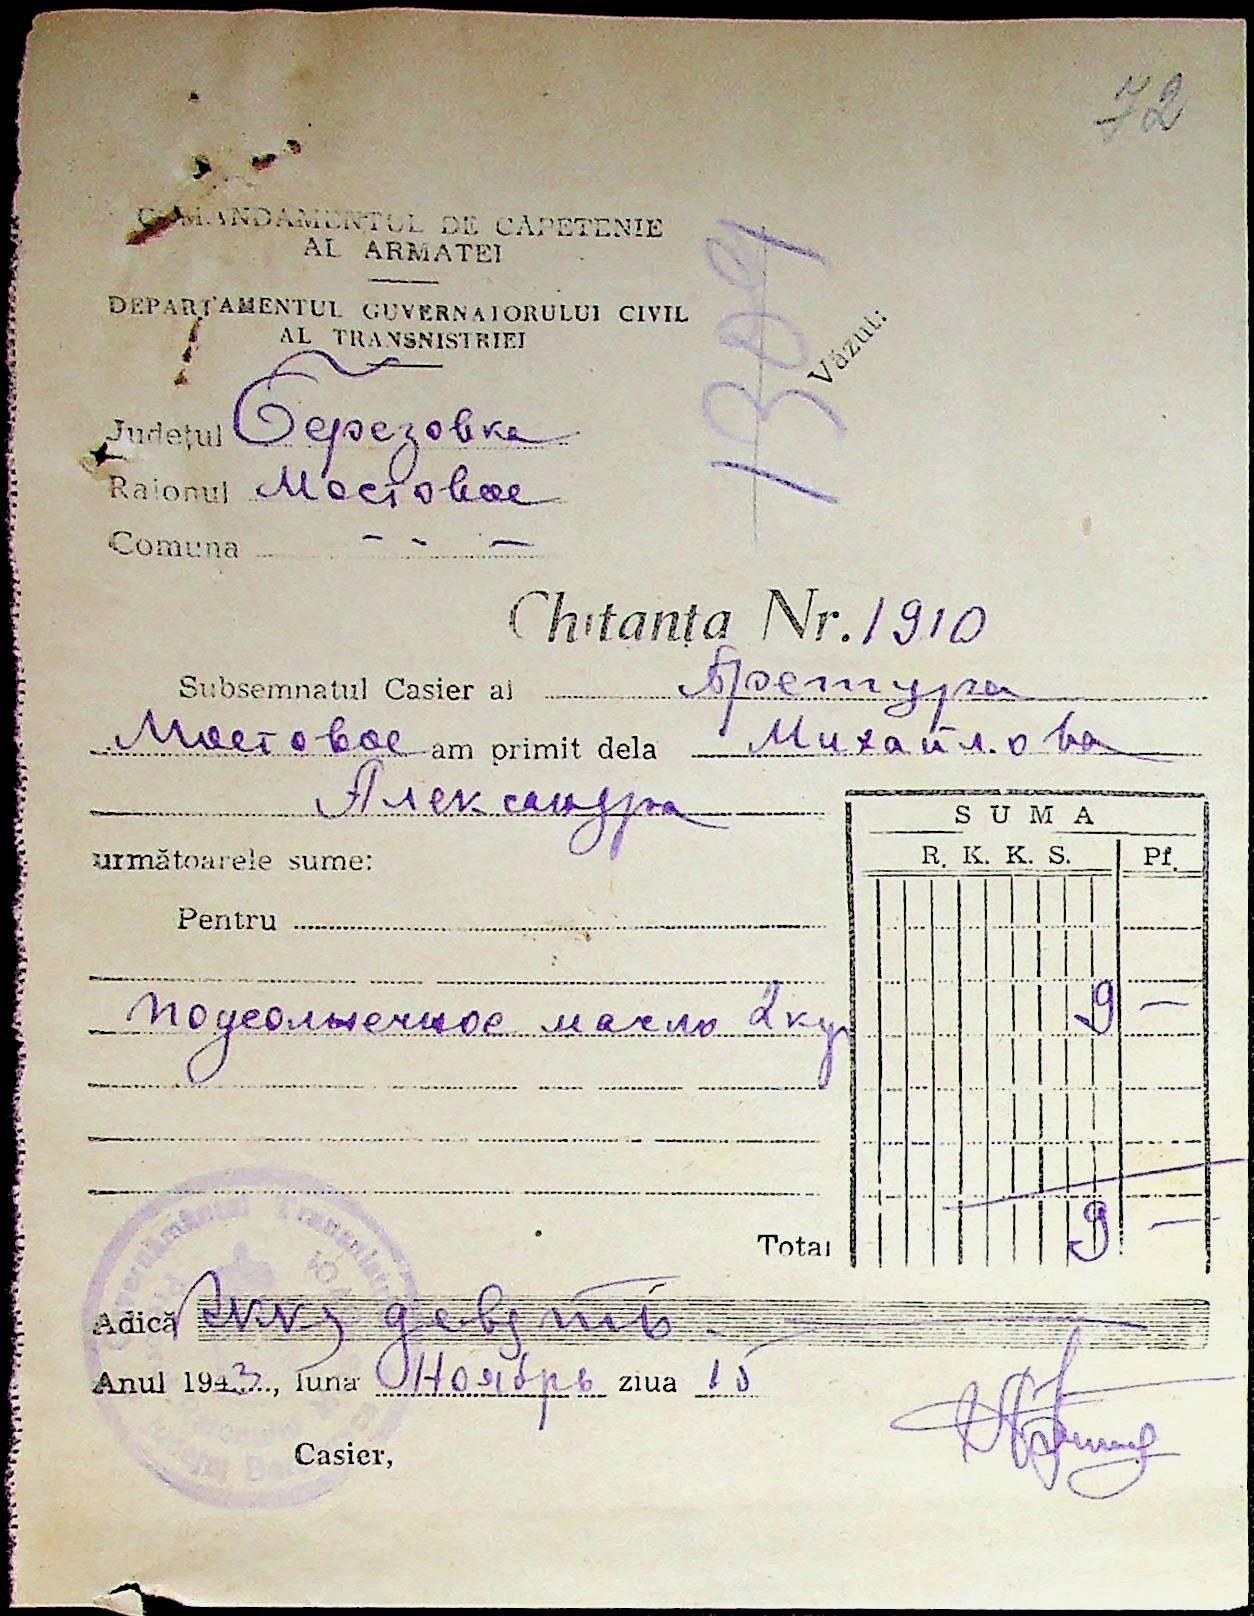 72
COMANDAMENTUL DE CAPETENIE
AL ARMATEI
DEPARTAMENTUL GUVERNATORULUI CIVIL
AL TRANSNISTRIEI
1309
Văzut:
Județul Березовка
Raionul Мостовое
Comuna - - -
Chitanța Nr. 1910
Subsemnatul Casier al Претура
Мостовое am primit dela Михайлова
Александра
următoarele sume:
SUMA
R. K. K. S. Pf.
Pentru
подсолнечное масло 2 кг 9 —
Total 9 —
Adică девять
Anul 1943, luna Ноябрь ziua 15
Casier,